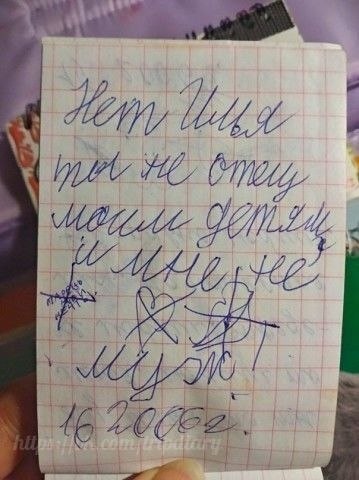 Нет Илья
ты не отец
моим детям,
и мне не
муж!
16 2006г.
https://vk.com/tripdiary